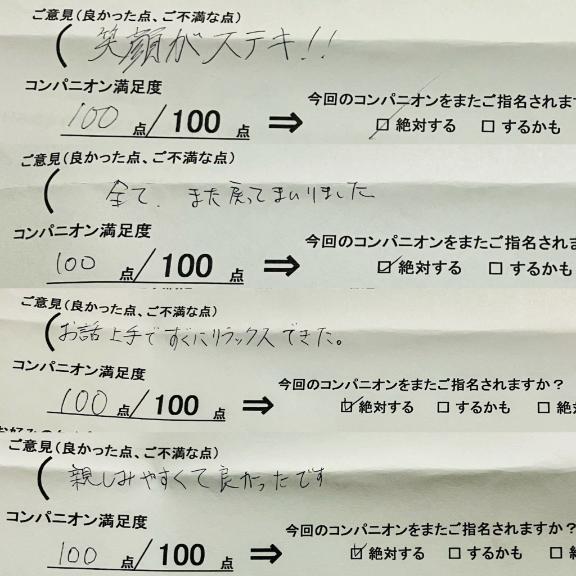 ご意見(良かった点、ご不満な点)
( 笑顔がステキ!!
コンパニオン満足度
100 点/100 点 ⇒
今回のコンパニオンをまたご指名されます
☑ 絶対する □ するかも
ご意見(良かった点、ご不満な点)
( 全て、また戻ってまいりました
コンパニオン満足度
100 点/100 点 ⇒
今回のコンパニオンをまたご指名されま
☑ 絶対する □ するかも
ご意見(良かった点、ご不満な点)
( お話上手ですぐにリラックスできた。
コンパニオン満足度
100 点/100 点 ⇒
今回のコンパニオンをまたご指名されますか?
☑ 絶対する □ するかも □ 絶
ご意見(良かった点、ご不満な点)
( 親しみやすくて良かったです
コンパニオン満足度
100 点/100 点 ⇒
今回のコンパニオンをまたご指名されますか?
☑ 絶対する □ するかも □